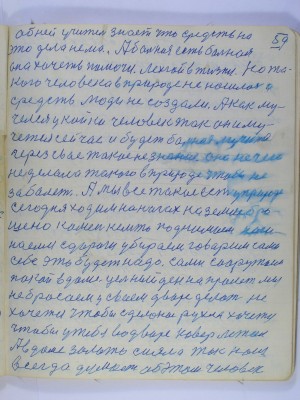 59
обней учителя знает что средств на
это дела нема. А больная есть больная
она хочеть помочи. Легкой в жизни. Но та
кого человека в природе не нашлось а
средств люди не создали. А как му-
чился у койки человек так он и му-
четься сейчас и будет
через свае такое незнание она ничего
не делала такого в природе чтобы не
заболеть. А мы все такие есть
сегодня ходим на ногах на земле
камень мы то поднимаем
с дороги убираем говорим сами
себе это будет надо. сами
покой в доме целый день на
не бросаем у своем дворе делат не
хочети чтобы сделано рукой хочети
чтобы у тебя во дворе ковер лежал
А в доме золото сияло так наш
всегда думает об этом человек